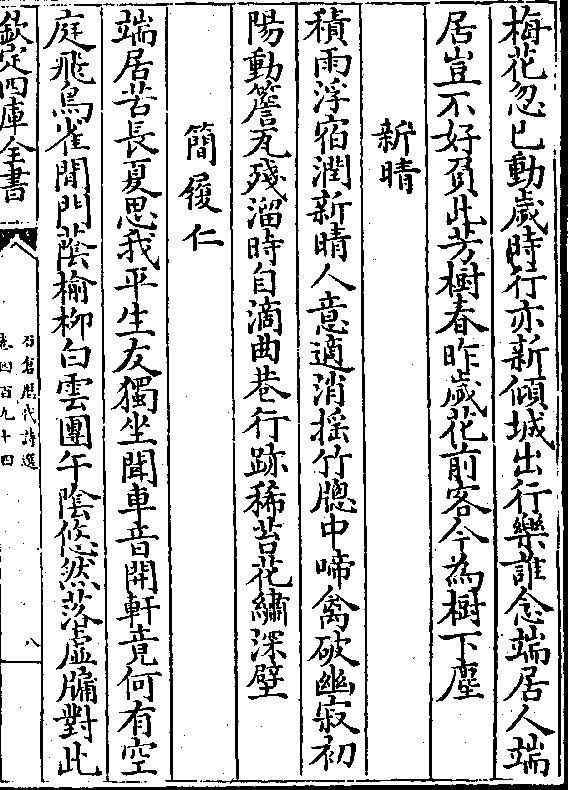 梅花忽已動歲時行亦新傾城出行樂誰念端居人端
居豈不好負此芳樹春昨歲花前客今為樹下塵
新晴
積雨浮宿潤新晴人意適消搖竹牕中啼禽破幽寂初
陽動簷瓦殘溜時自滴曲巷行跡稀苔花繡深壁
簡履仁
端居苦長夏思我平生友獨坐聞車音開軒竟何有空
庭飛鳥雀閒門蔭榆柳白雲團午陰悠然落虛牖對此
欽定四庫全書
石倉歷代詩選
卷四百九十四
八